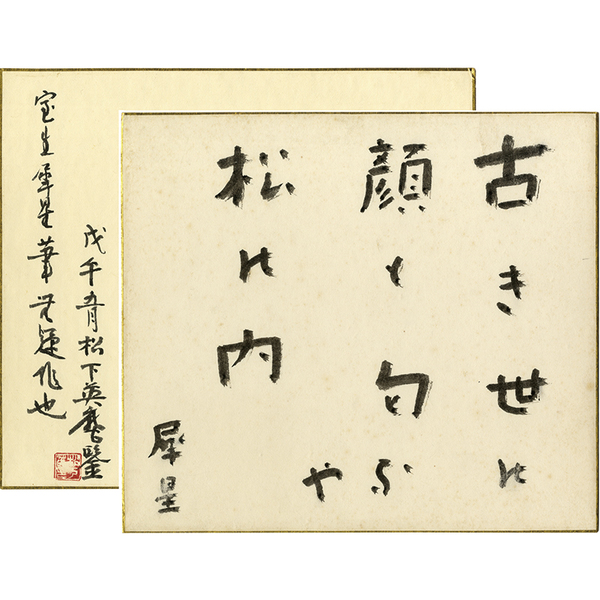 古き世の
顔も匂ふ
や
松の内
犀星
戊午五月松下英麿鑒
室生犀星筆無疑作也